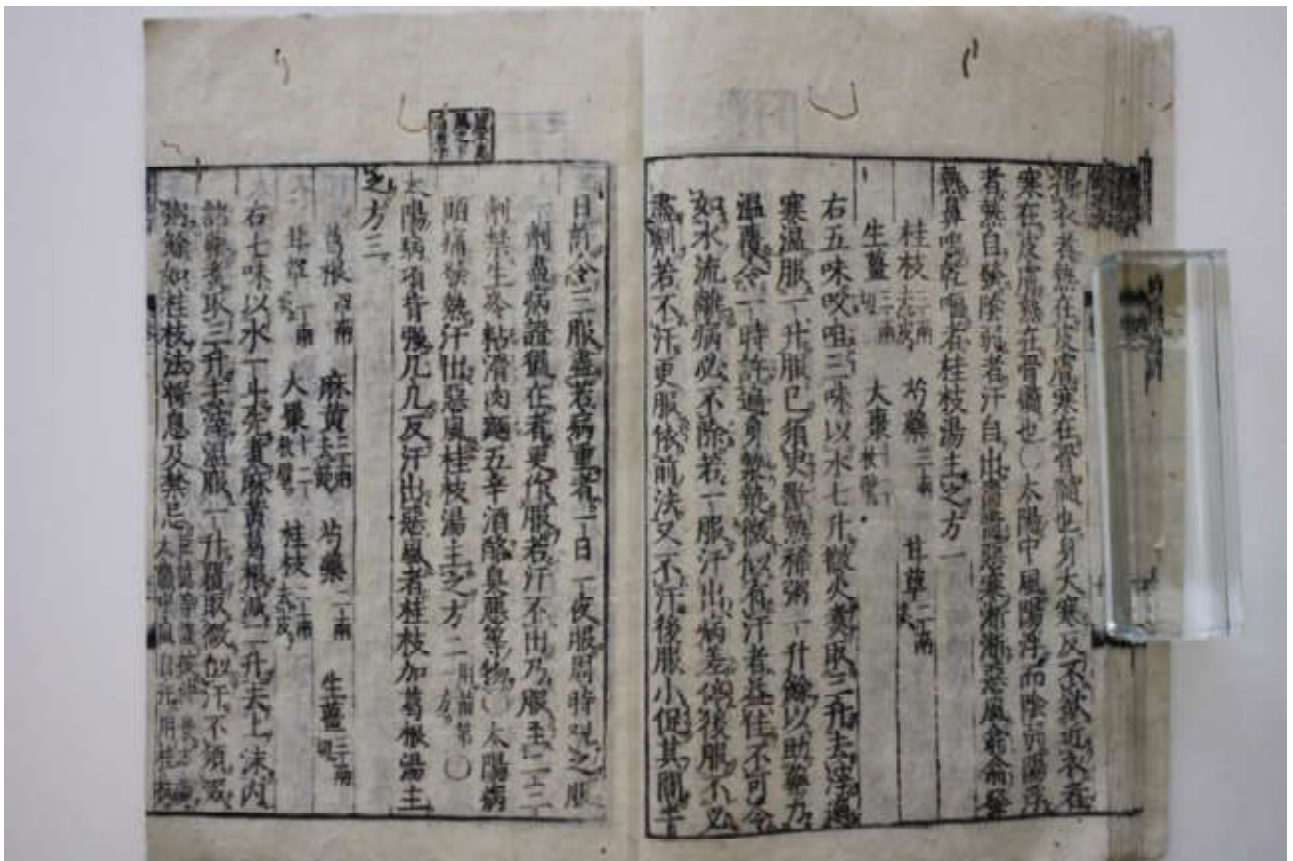 得衣者熱在皮膚寒在骨髓也身大寒反不欲近衣者
寒在皮膚熱在骨髓也〇太陽中風陽浮而陰弱陽浮
者熱自發陰弱者汗自出嗇嗇惡寒淅淅惡風翕翕發
熱鼻鳴乾嘔者桂枝湯主之方一
桂枝三兩去皮 芍藥三兩 甘草二兩炙
生薑三兩切 大棗十二枚擘
右五味㕮咀三味以水七升微火煑取三升去滓適
寒溫服一升服已須臾歠熱稀粥一升餘以助藥力
溫覆令一時許遍身漐漐微似有汗者益佳不可令
如水流離病必不除若一服汗出病差停後服不必
盡劑若不汗更服依前法又不汗後服小促其間半
日許令三服盡若病重者一日一夜服周時觀之服
一劑盡病證猶在者更作服若汗不出乃服至二三
劑禁生冷粘滑肉麵五辛酒酪臭惡等物〇太陽病
頭痛發熱汗出惡風桂枝湯主之方二用前第一方〇
太陽病項背強几几反汗出惡風者桂枝加葛根湯主
之方三
葛根四兩 麻黃三兩去節 芍藥二兩 生薑三兩切
甘草二兩炙 大棗十二枚擘 桂枝二兩去皮
右七味以水一斗先煑麻黃葛根減二升去上沫內
諸藥煑取三升去滓溫服一升覆取微似汗不須歠
粥餘如桂枝法將息及禁忌